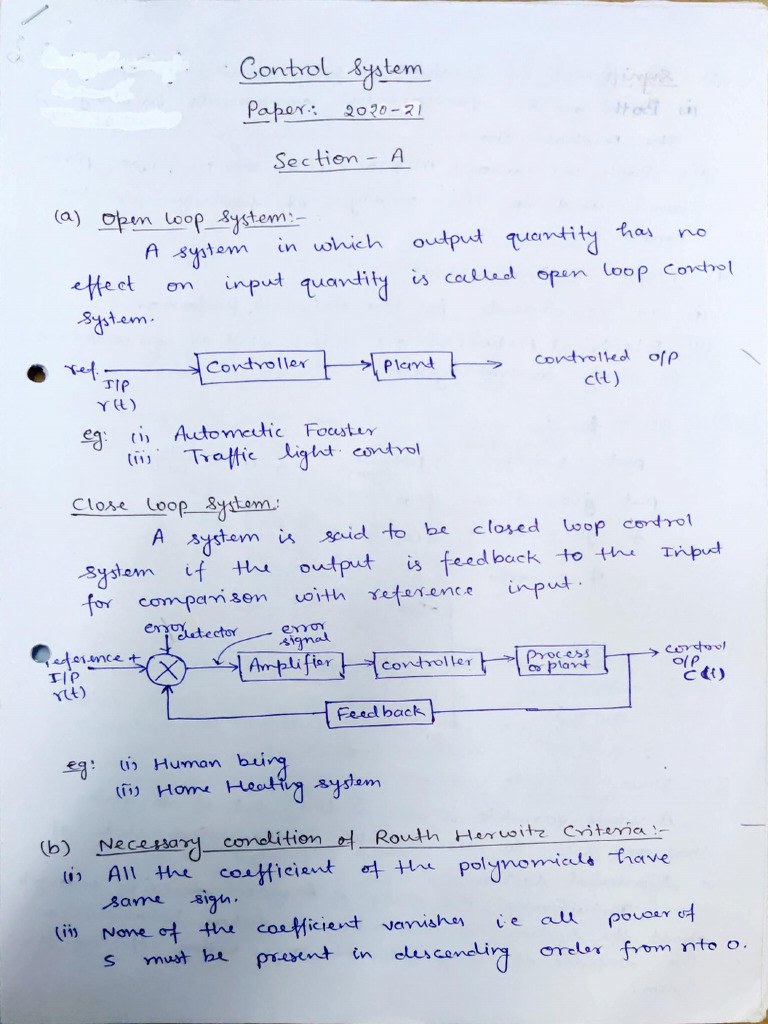 Control System
Paper:- 2020-21
Section - A
(a) Open loop System:-
A system in which output quantity has no
effect on input quantity is called open loop control
system.
ref. Controller Plant controlled o/p
I/P c(t)
r(t)
eg: (i) Automatic Foaster
(ii) Traffic light control
Close Loop System:
A system is said to be closed loop control
system if the output is feedback to the Input
for comparison with reference input.
error detector error signal
reference + Amplifier controller Process or plant control
I/P O/P
r(t) C(t)
Feedback
eg: (i) Human being
(ii) Home Heating system
(b) Necessary condition of Routh Herwitz Criteria:-
(i) All the coefficient of the polynomials have
same sign.
(ii) None of the coefficient vanishes i.e all power of
S must be present in descending order from n to 0.